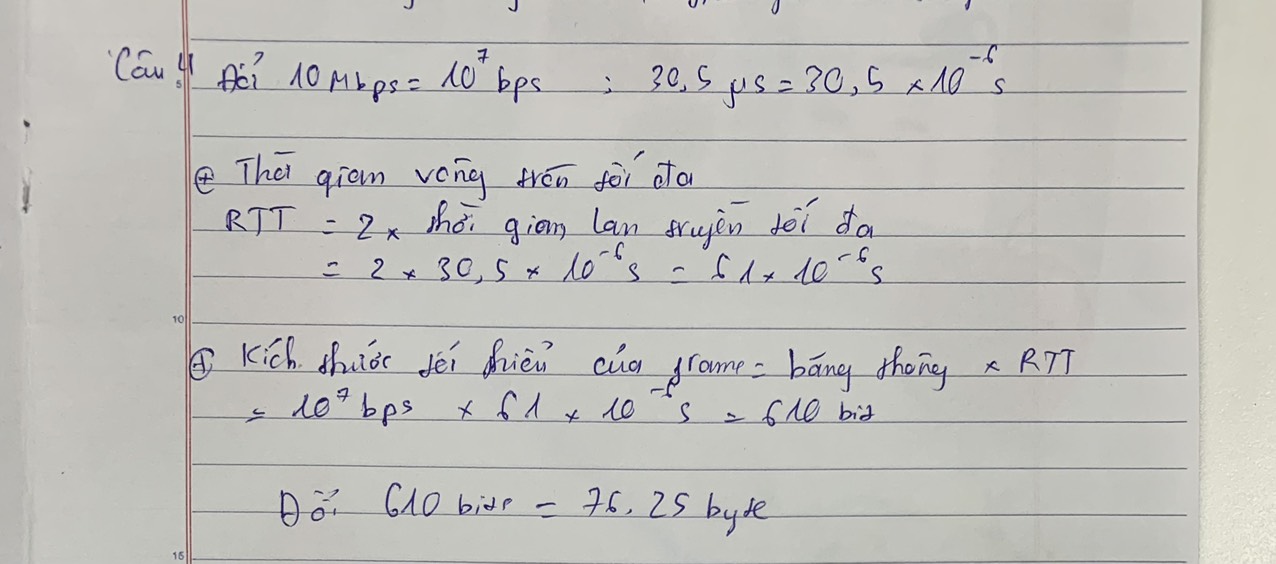 Câu 4 Đổi 10 Mbps = 10⁷ bps ; 30,5 µs = 30,5 × 10⁻⁶ s
⊕ Thời gian vòng trên tối đa
RTT = 2 × thời gian lan truyền tối đa
= 2 × 30,5 × 10⁻⁶ s = 61 × 10⁻⁶ s
10
⊕ Kích thước tối thiểu của frame = băng thông × RTT
= 10⁷ bps × 61 × 10⁻⁶ s = 610 bit
Đổi 610 bits = 76.25 byte
15